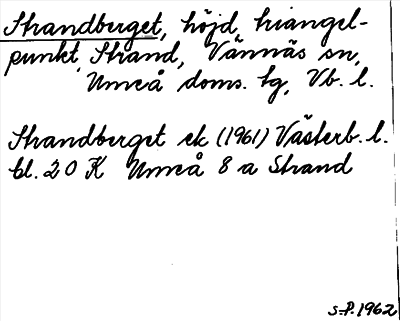 Strandberget, höjd, triangel-
punkt, Strand, Vännäs sn,
Umeå doms. tg, Vb. l.
Strandberget ek (1961) Västerb. l.
bl. 20 K Umeå 8 a Strand
S.P. 1962